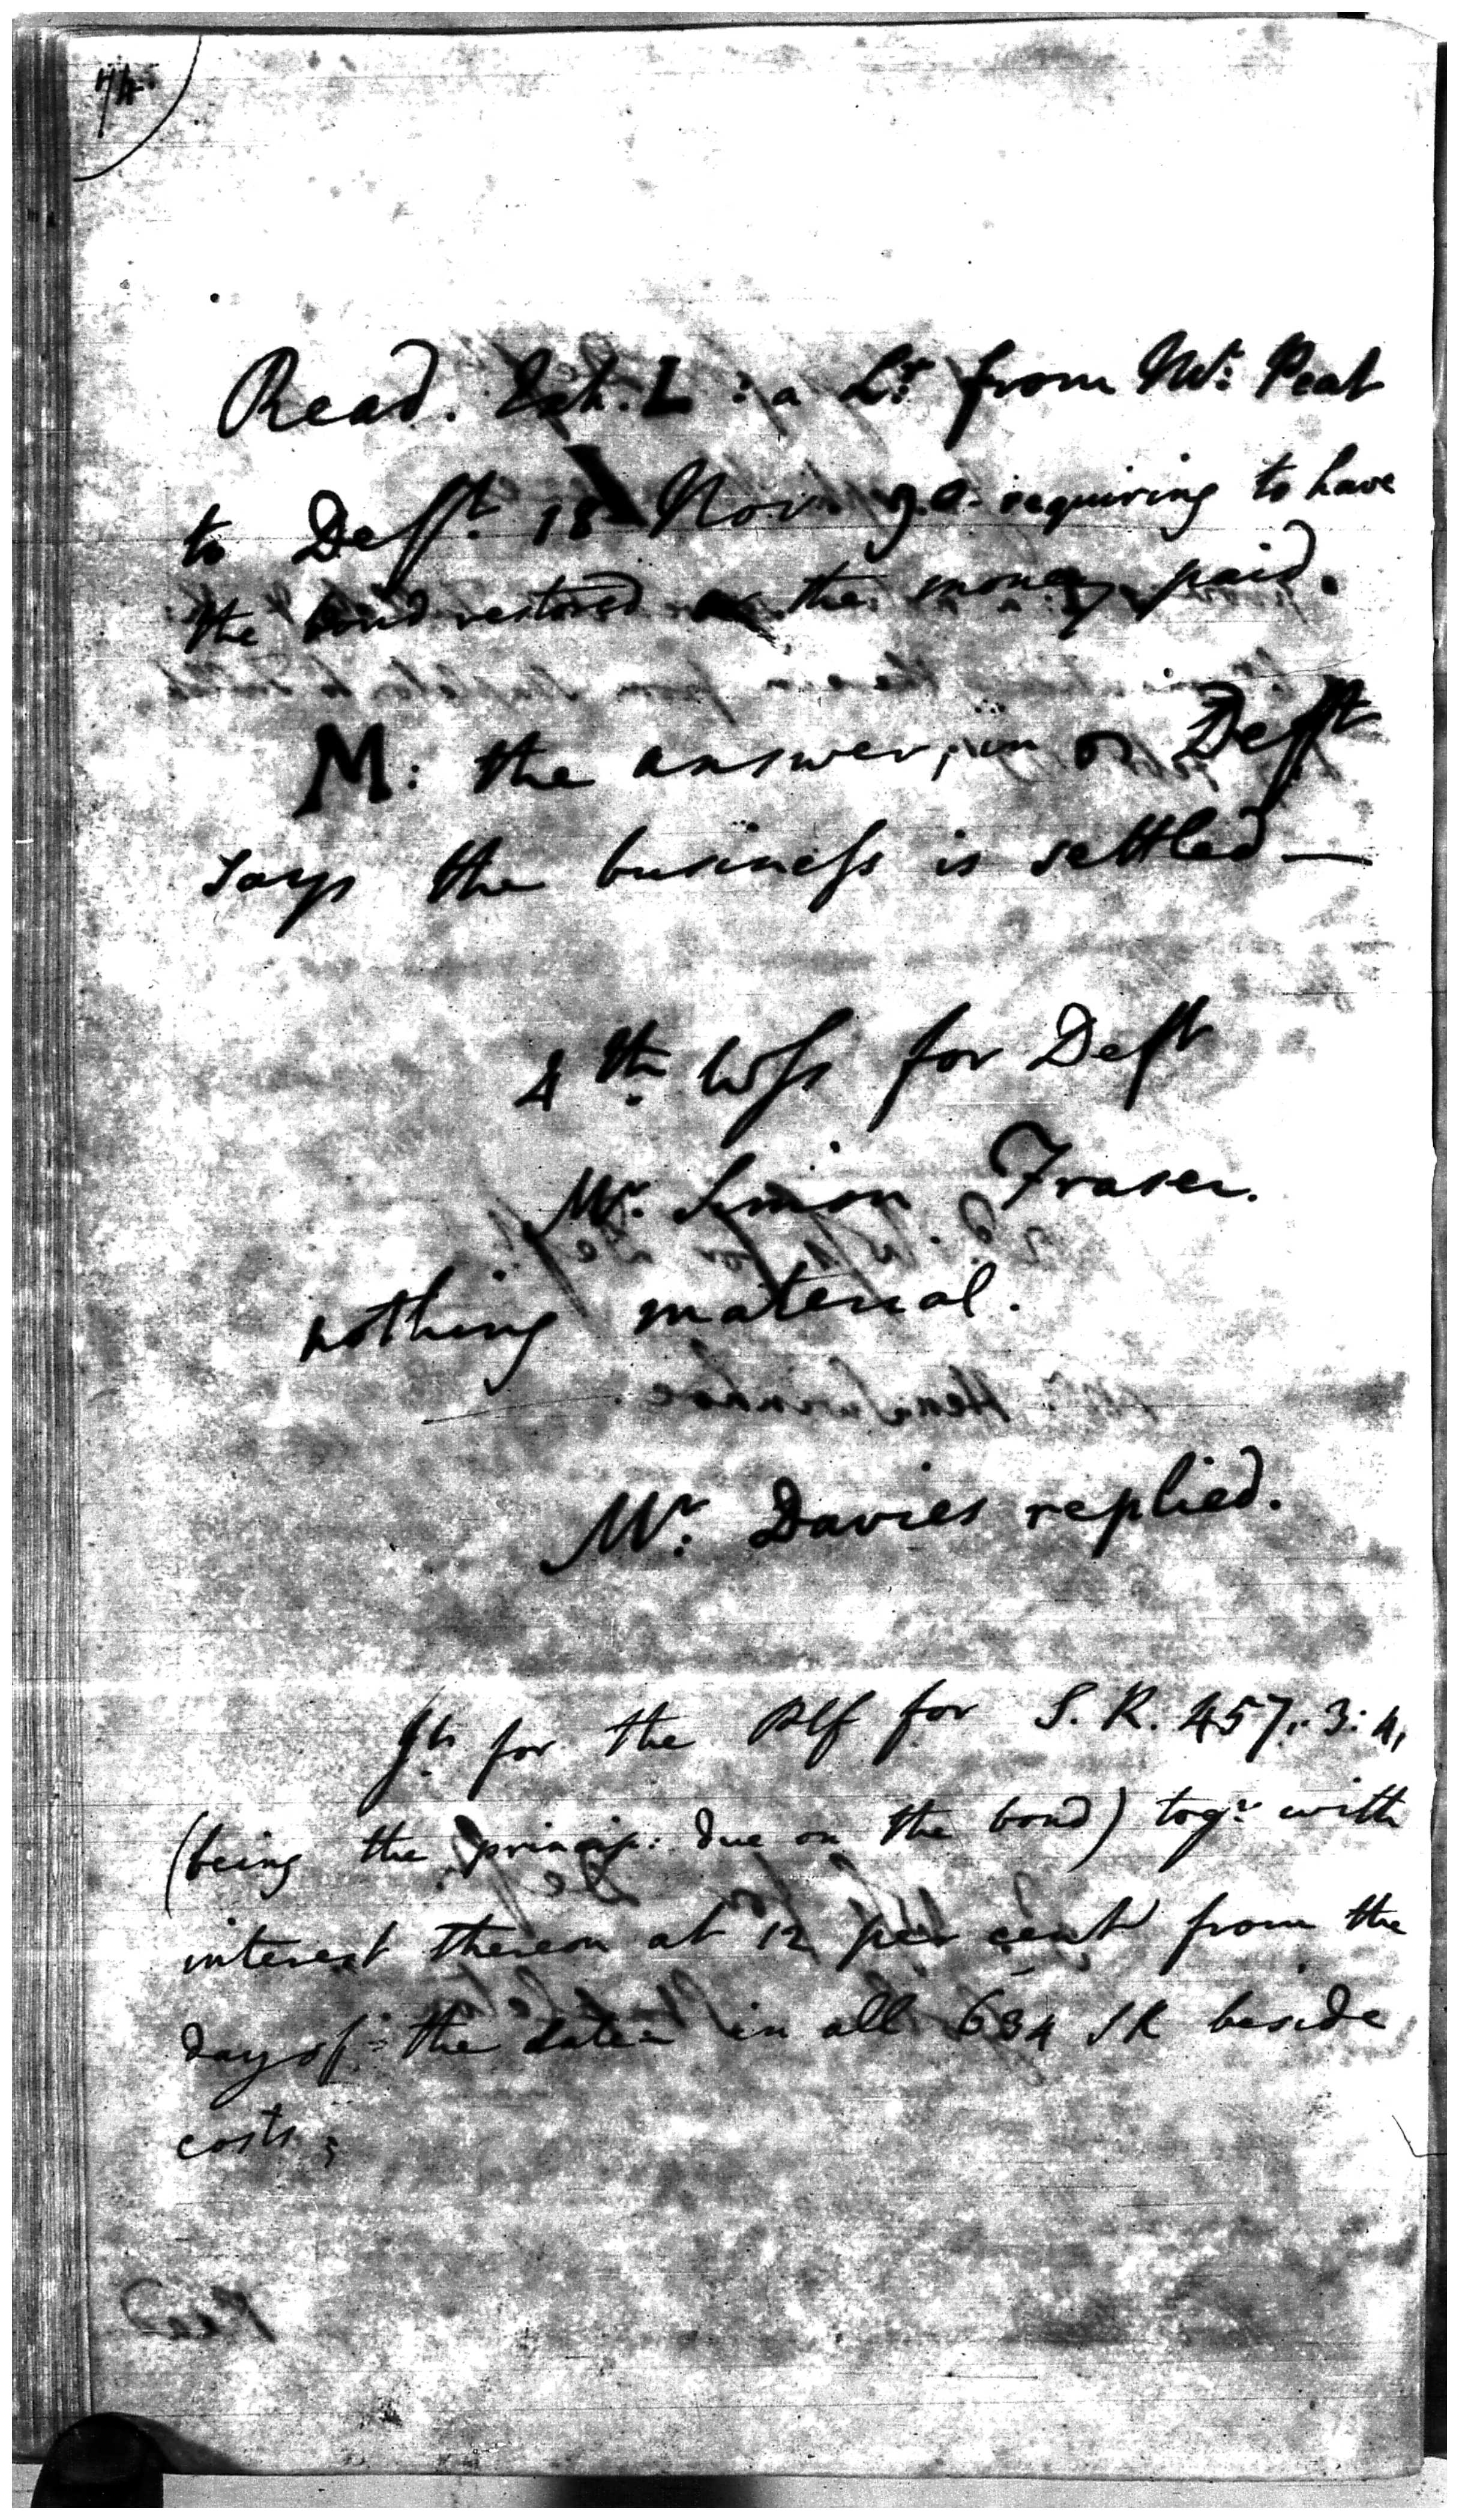 74.
Read. Exh. L : a Lr. from Mr. Peat
to Defft. 18 Nov. requiring to have
the bond restored or the money paid.
M : the answer, in Defft
says the business is settled —
4th. Wss for Deft
Mr. Simon Fraser.
nothing material.
Mr. Davies replied.
Jt. for the Plf for S. R. 457 : 3 : 4,
(being the princip: due on the bond) togr. with
interest thereon at 12 per cent from the
day of the date in all 634 SR beside
costs ;